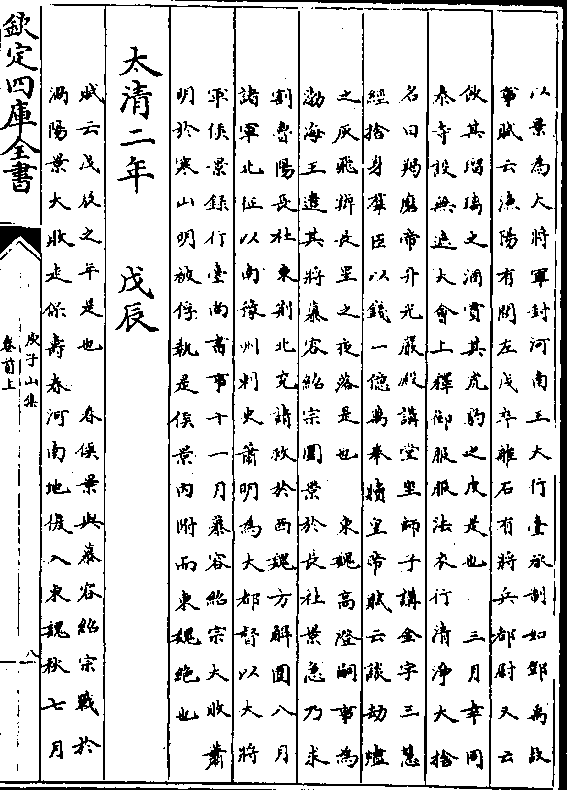 以景為大將軍封河南王大行臺承制如鄧禹故
事賦云漁陽有閭左戍卒離石有將兵都尉又云
傚其瑠璃之酒賞其虎豹之皮是也　三月幸同
泰寺設無遮大會上釋御服服法衣行清淨大捨
名曰羯磨帝升光嚴殿講堂坐師子講金字三慧
經捨身羣臣以錢一億萬奉贖皇帝賦云談劫燼
之灰飛辨長星之夜落是也　東魏高澄嗣事為
渤海王遣其將慕容紹宗圍景於長社景急乃求
割魯陽長社東荆北兖請救於西魏方解圍八月
諸軍北征以南豫州刺史蕭明為大都督以大將
軍侯景錄行臺尚書事十一月慕容紹宗大敗蕭
明於寒山明被俘執是侯景內附而東魏絶也
太清二年　戊辰
賦云戊辰之年是也　春侯景與慕容紹宗戰於
渦陽景大敗走保壽春河南地復入東魏秋七月
欽定四庫全書
庾子山集
卷前上
八